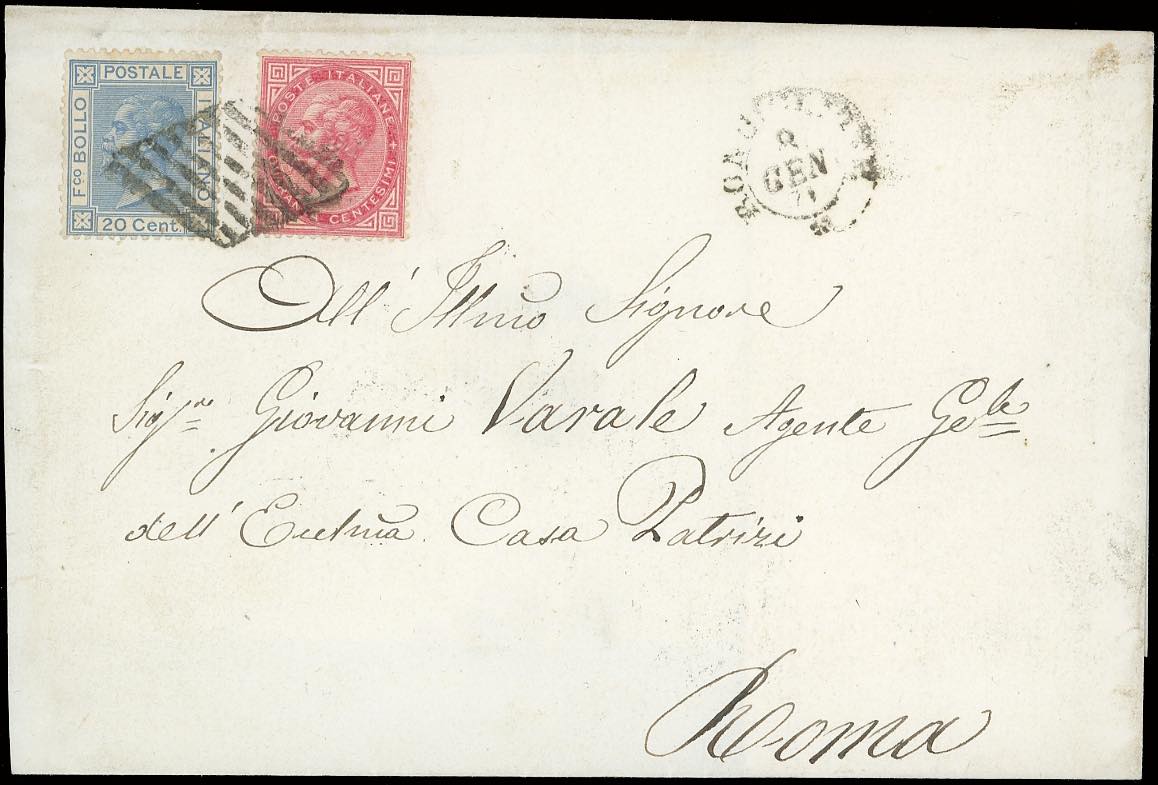 POSTALE
Fco BOLLO
ITALIANO
20 Cent.
POSTE ITALIANE
QUARANTA CENTESIMI
8
GEN
71
All' Illmo Signore
Sigre Giovanni Varale Agente Gele
dell' Ecclma Casa Patrizi
Roma